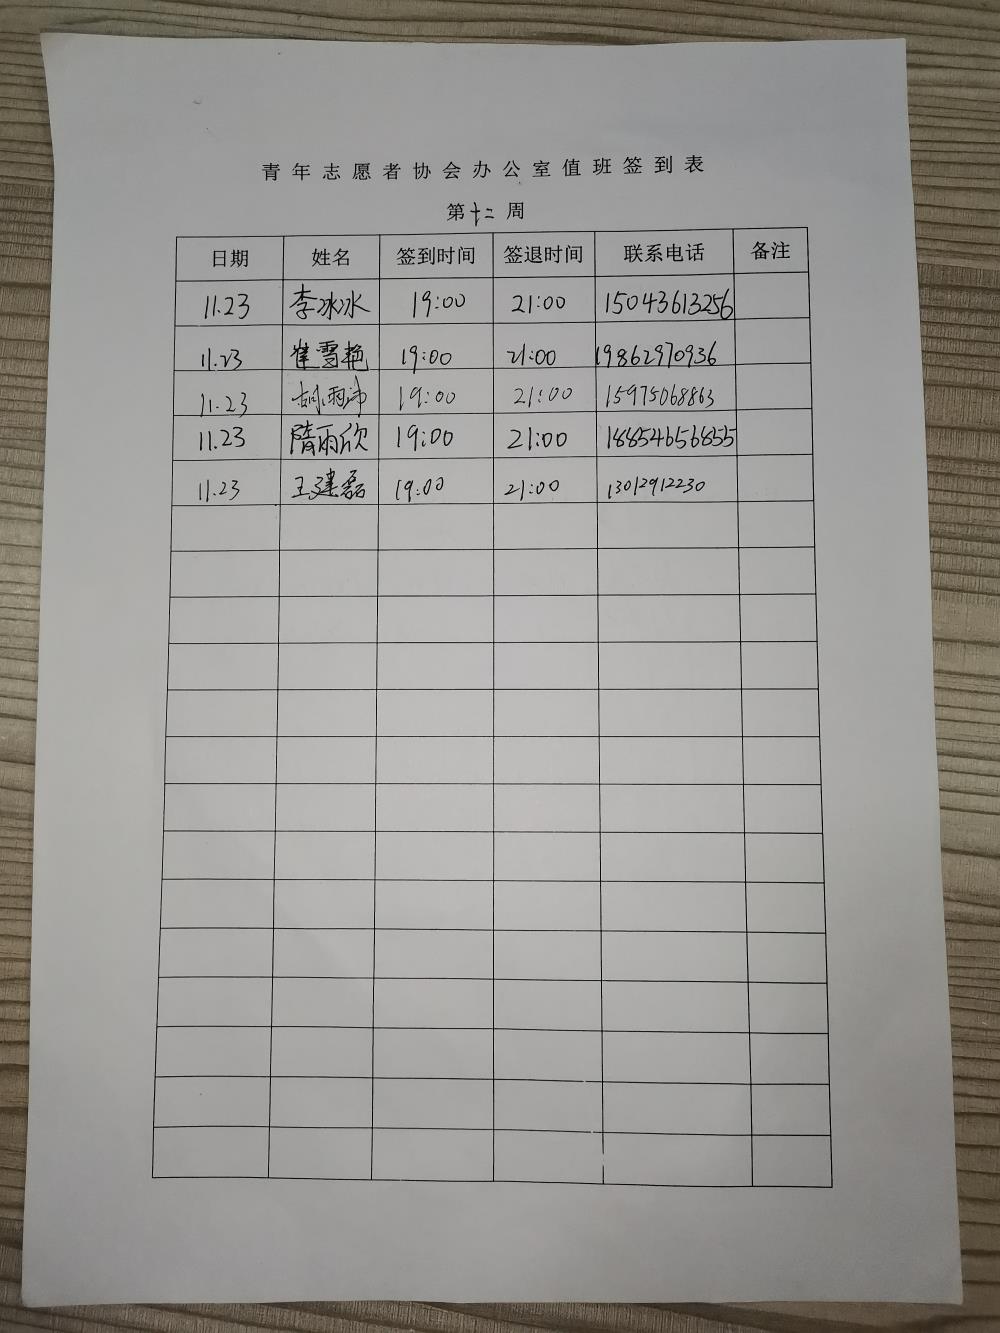 青年志愿者协会办公室值班签到表
第十二周
日期 姓名 签到时间 签退时间 联系电话 备注
11.23 李冰冰 19:00 21:00 15043613256
11.23 崔雪艳 19:00 21:00 19862970936
11.23 胡雨沛 19:00 21:00 15975068863
11.23 隋雨欣 19:00 21:00 18854656855
11.23 王建磊 19:00 21:00 13012912230